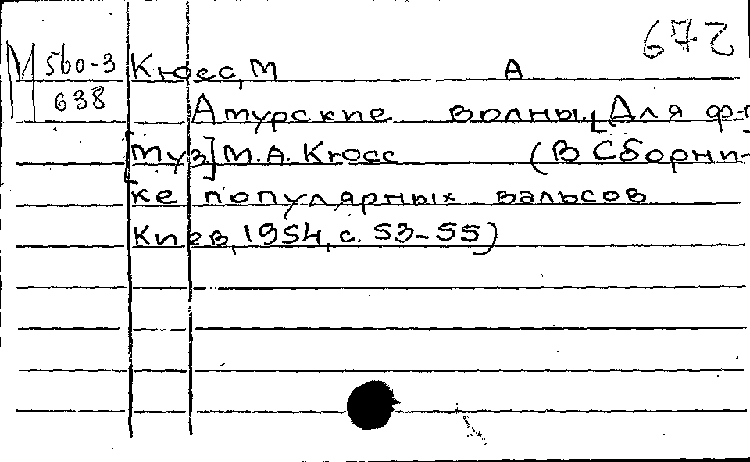 672
М 560-3 Кюсс, М А
638 Амурские волны. [Для ф-п
[муз] М.А. Кюсс (В Сборни-
ке популярных вальсов
Киев, 1954, с. 53-55)